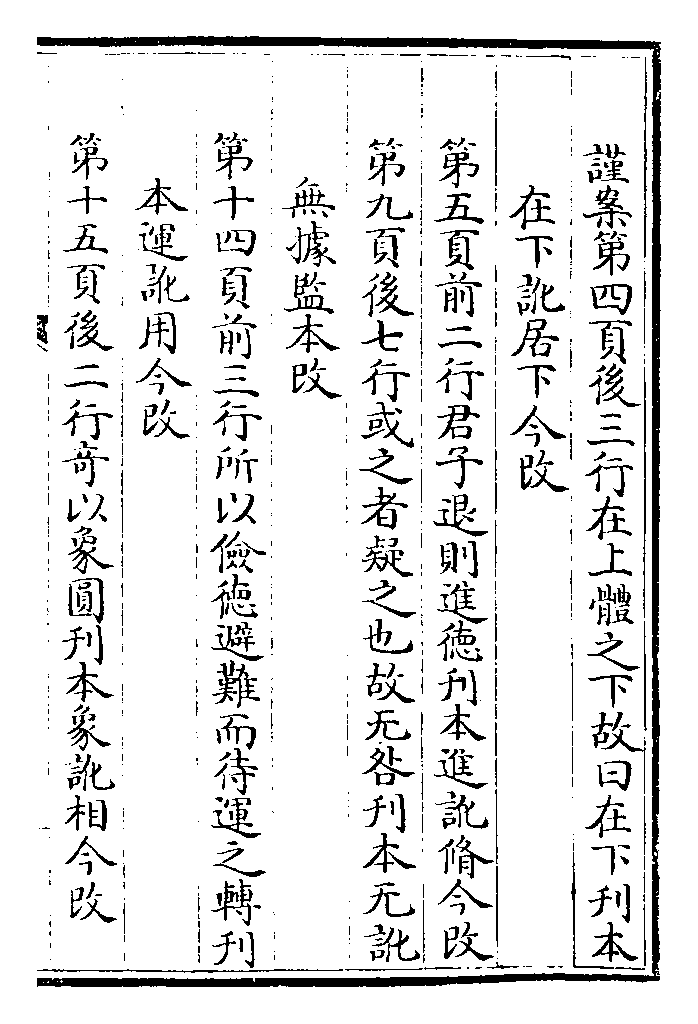 謹案第四頁後三行在上體之下故曰在下刋本
在下訛居下今改
第五頁前二行君子退則進德刋本進訛脩今改
第九頁後七行或之者疑之也故无咎刋本无訛
無據監本改
第十四頁前三行所以儉德避難而待運之轉刋
本運訛用今改
第十五頁後二行竒以象圓刋本象訛相今改